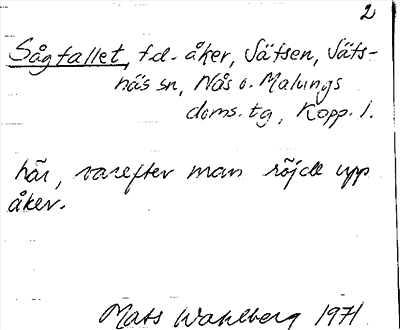 2
Sågfallet, f.d. åker, Sätsen, Säfs-
näs sn, Nås o. Malungs
doms. tg, Kopp. l.
här, varefter man röjde upp
åker.
Mats Wahlberg 1971